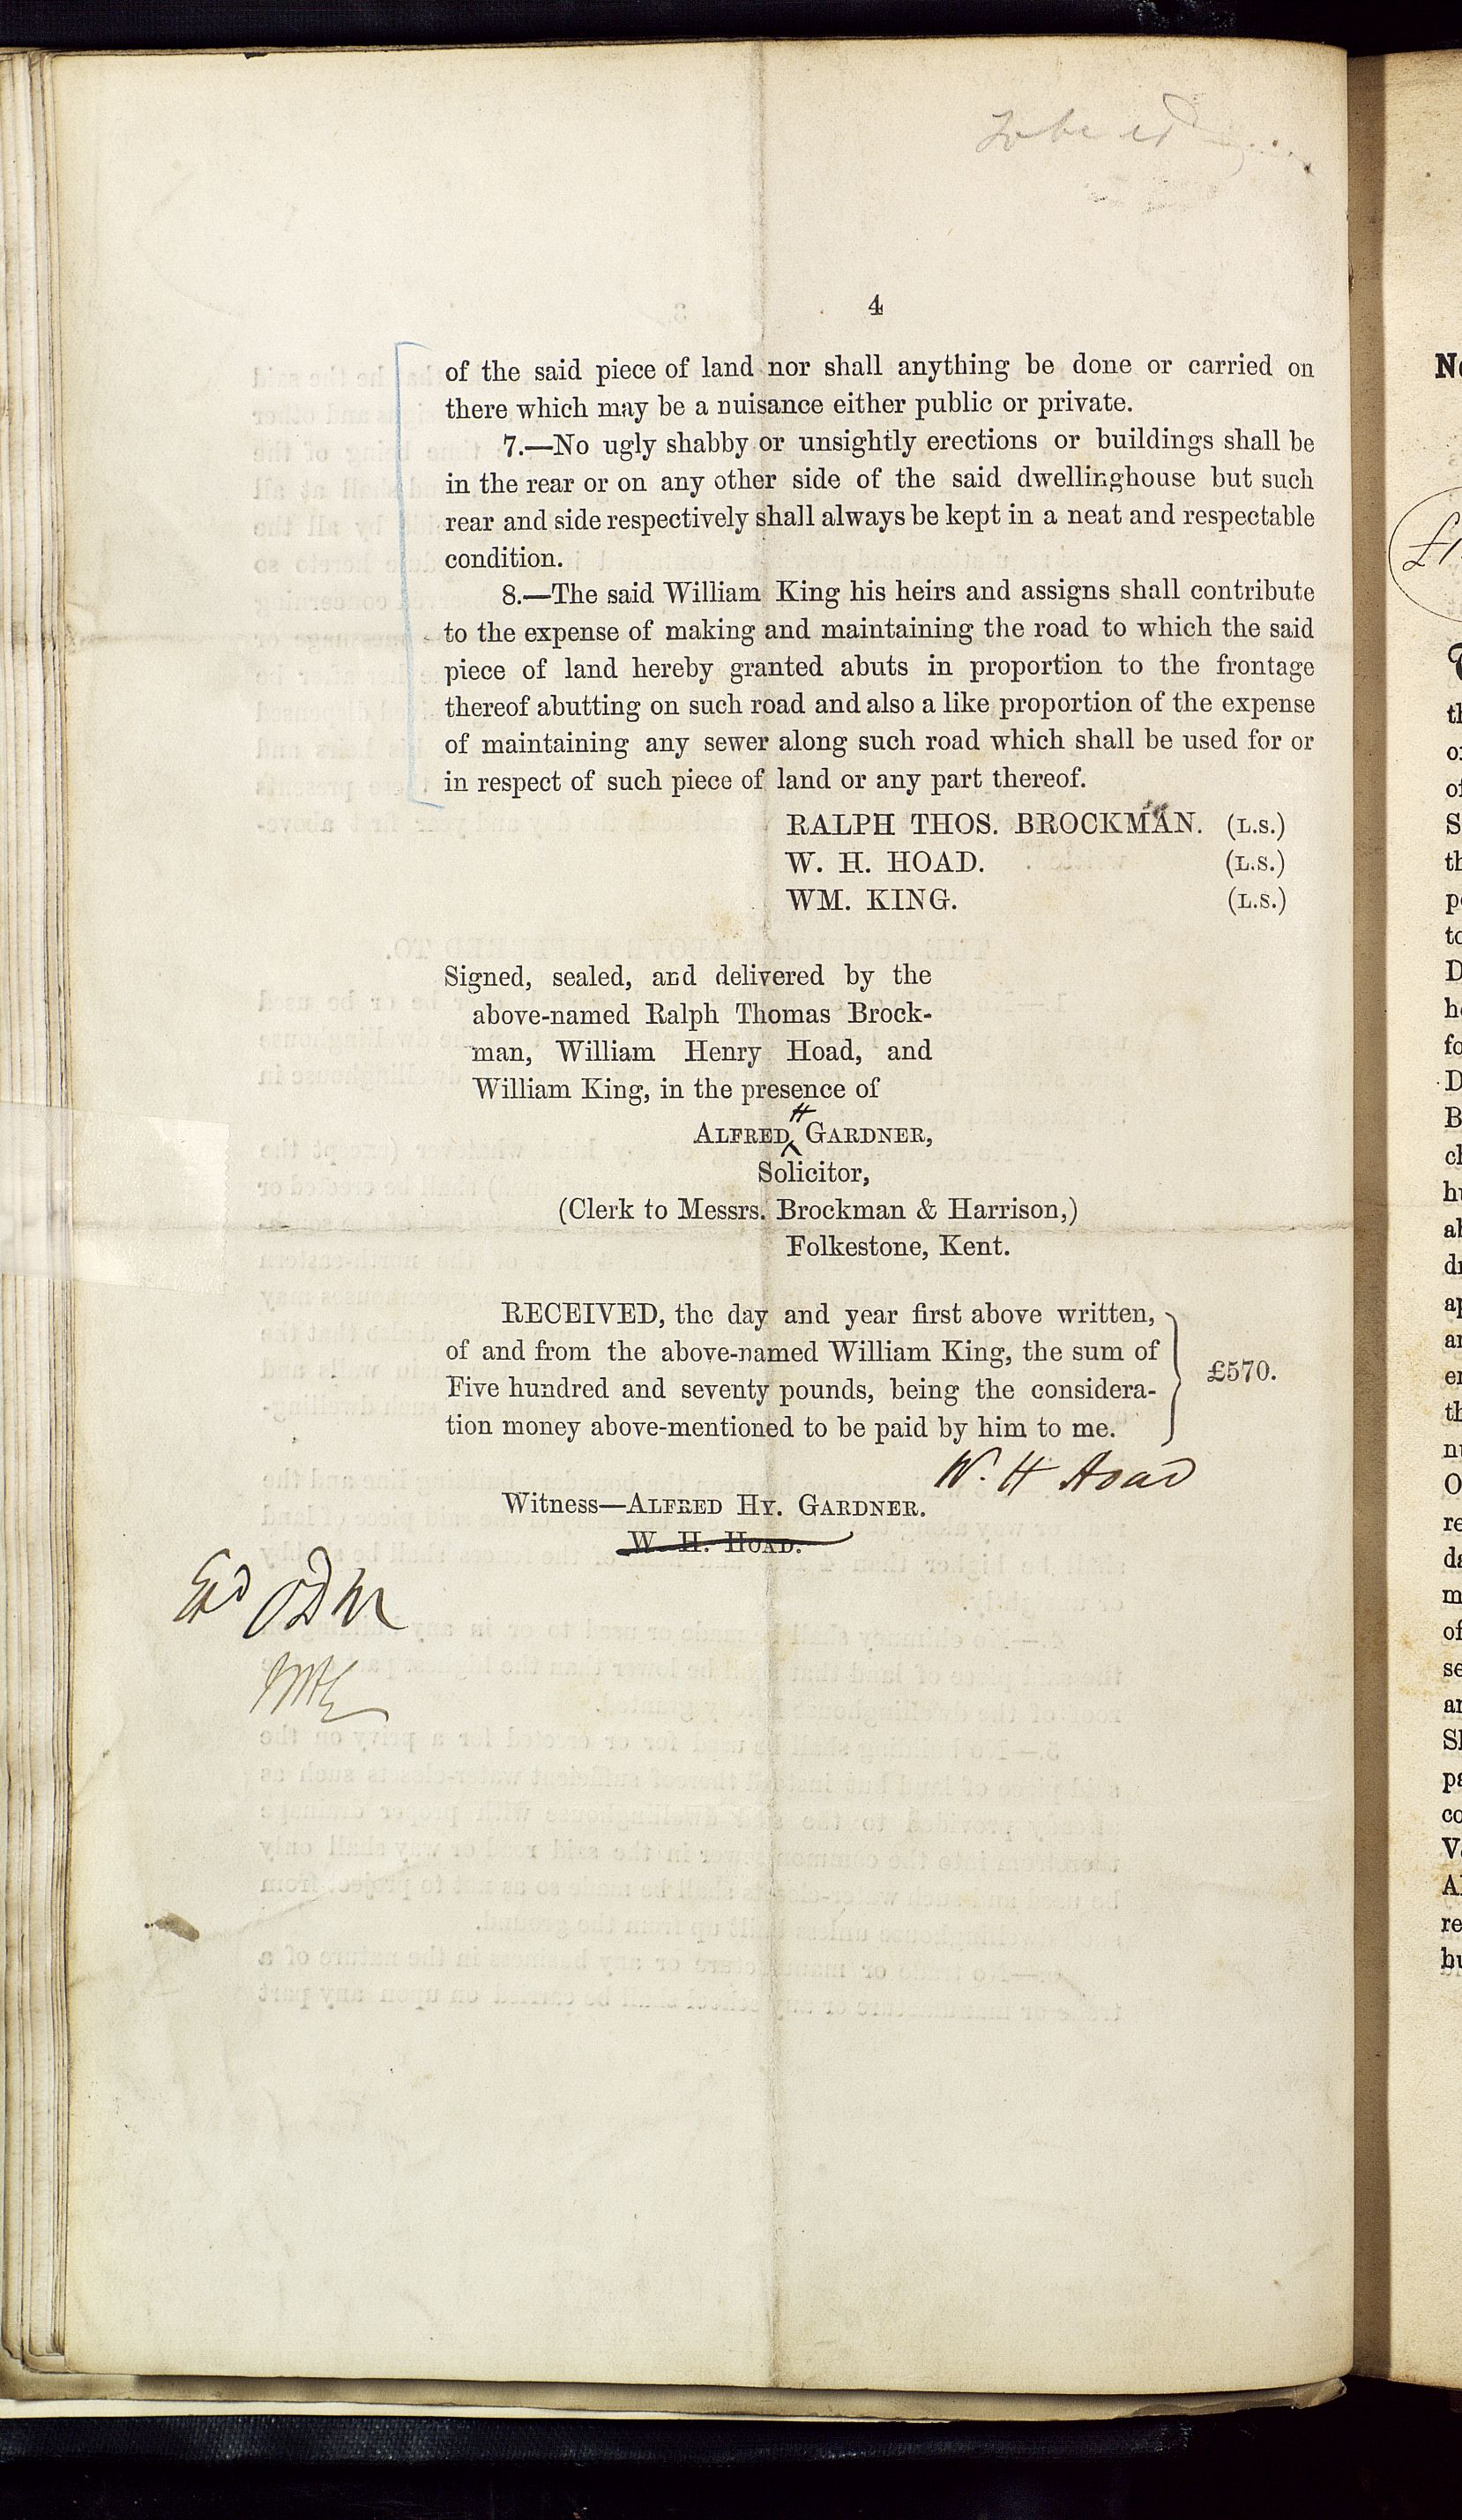 To be
4
of the said piece of land nor shall anything be done or carried on
there which may be a nuisance either public or private.
7.—No ugly shabby or unsightly erections or buildings shall be
in the rear or on any other side of the said dwellinghouse but such
rear and side respectively shall always be kept in a neat and respectable
condition.
8.—The said William King his heirs and assigns shall contribute
to the expense of making and maintaining the road to which the said
piece of land hereby granted abuts in proportion to the frontage
thereof abutting on such road and also a like proportion of the expense
of maintaining any sewer along such road which shall be used for or
in respect of such piece of land or any part thereof.
RALPH THOS. BROCKMAN. (L.S.)
W. H. HOAD. (L.S.)
WM. KING. (L.S.)
Signed, sealed, and delivered by the
above-named Ralph Thomas Brock-
man, William Henry Hoad, and
William King, in the presence of
H
ALFRED GARDNER,
Solicitor,
(Clerk to Messrs. Brockman & Harrison,)
Folkestone, Kent.
RECEIVED, the day and year first above written,
of and from the above-named William King, the sum of
Five hundred and seventy pounds, being the considera-
tion money above-mentioned to be paid by him to me.
£570.
W. H Hoad
Witness—ALFRED HY. GARDNER.
W. H. HOAD.
Exd